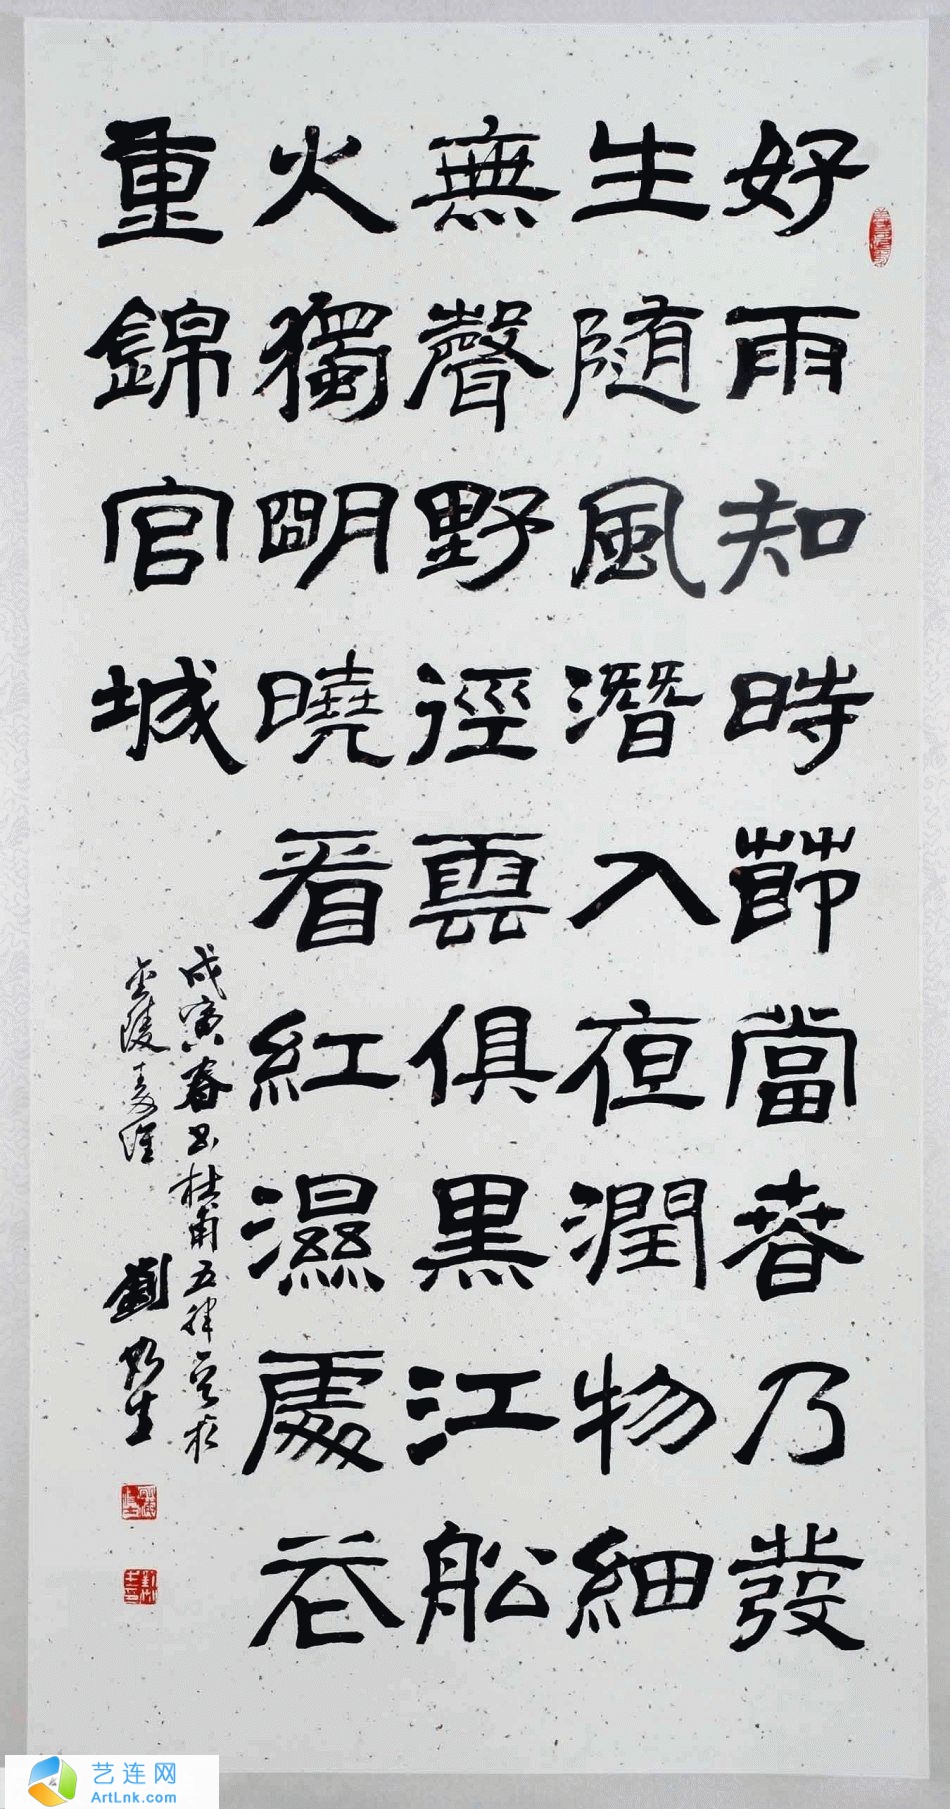 好雨知時節當春乃發
生随風潛入夜潤物細
無聲野徑雲俱黑江船
火獨明曉看紅濕處花
重錦官城
戊寅春書杜甫五律
金陵 劉
艺连网
ArtLnk.com